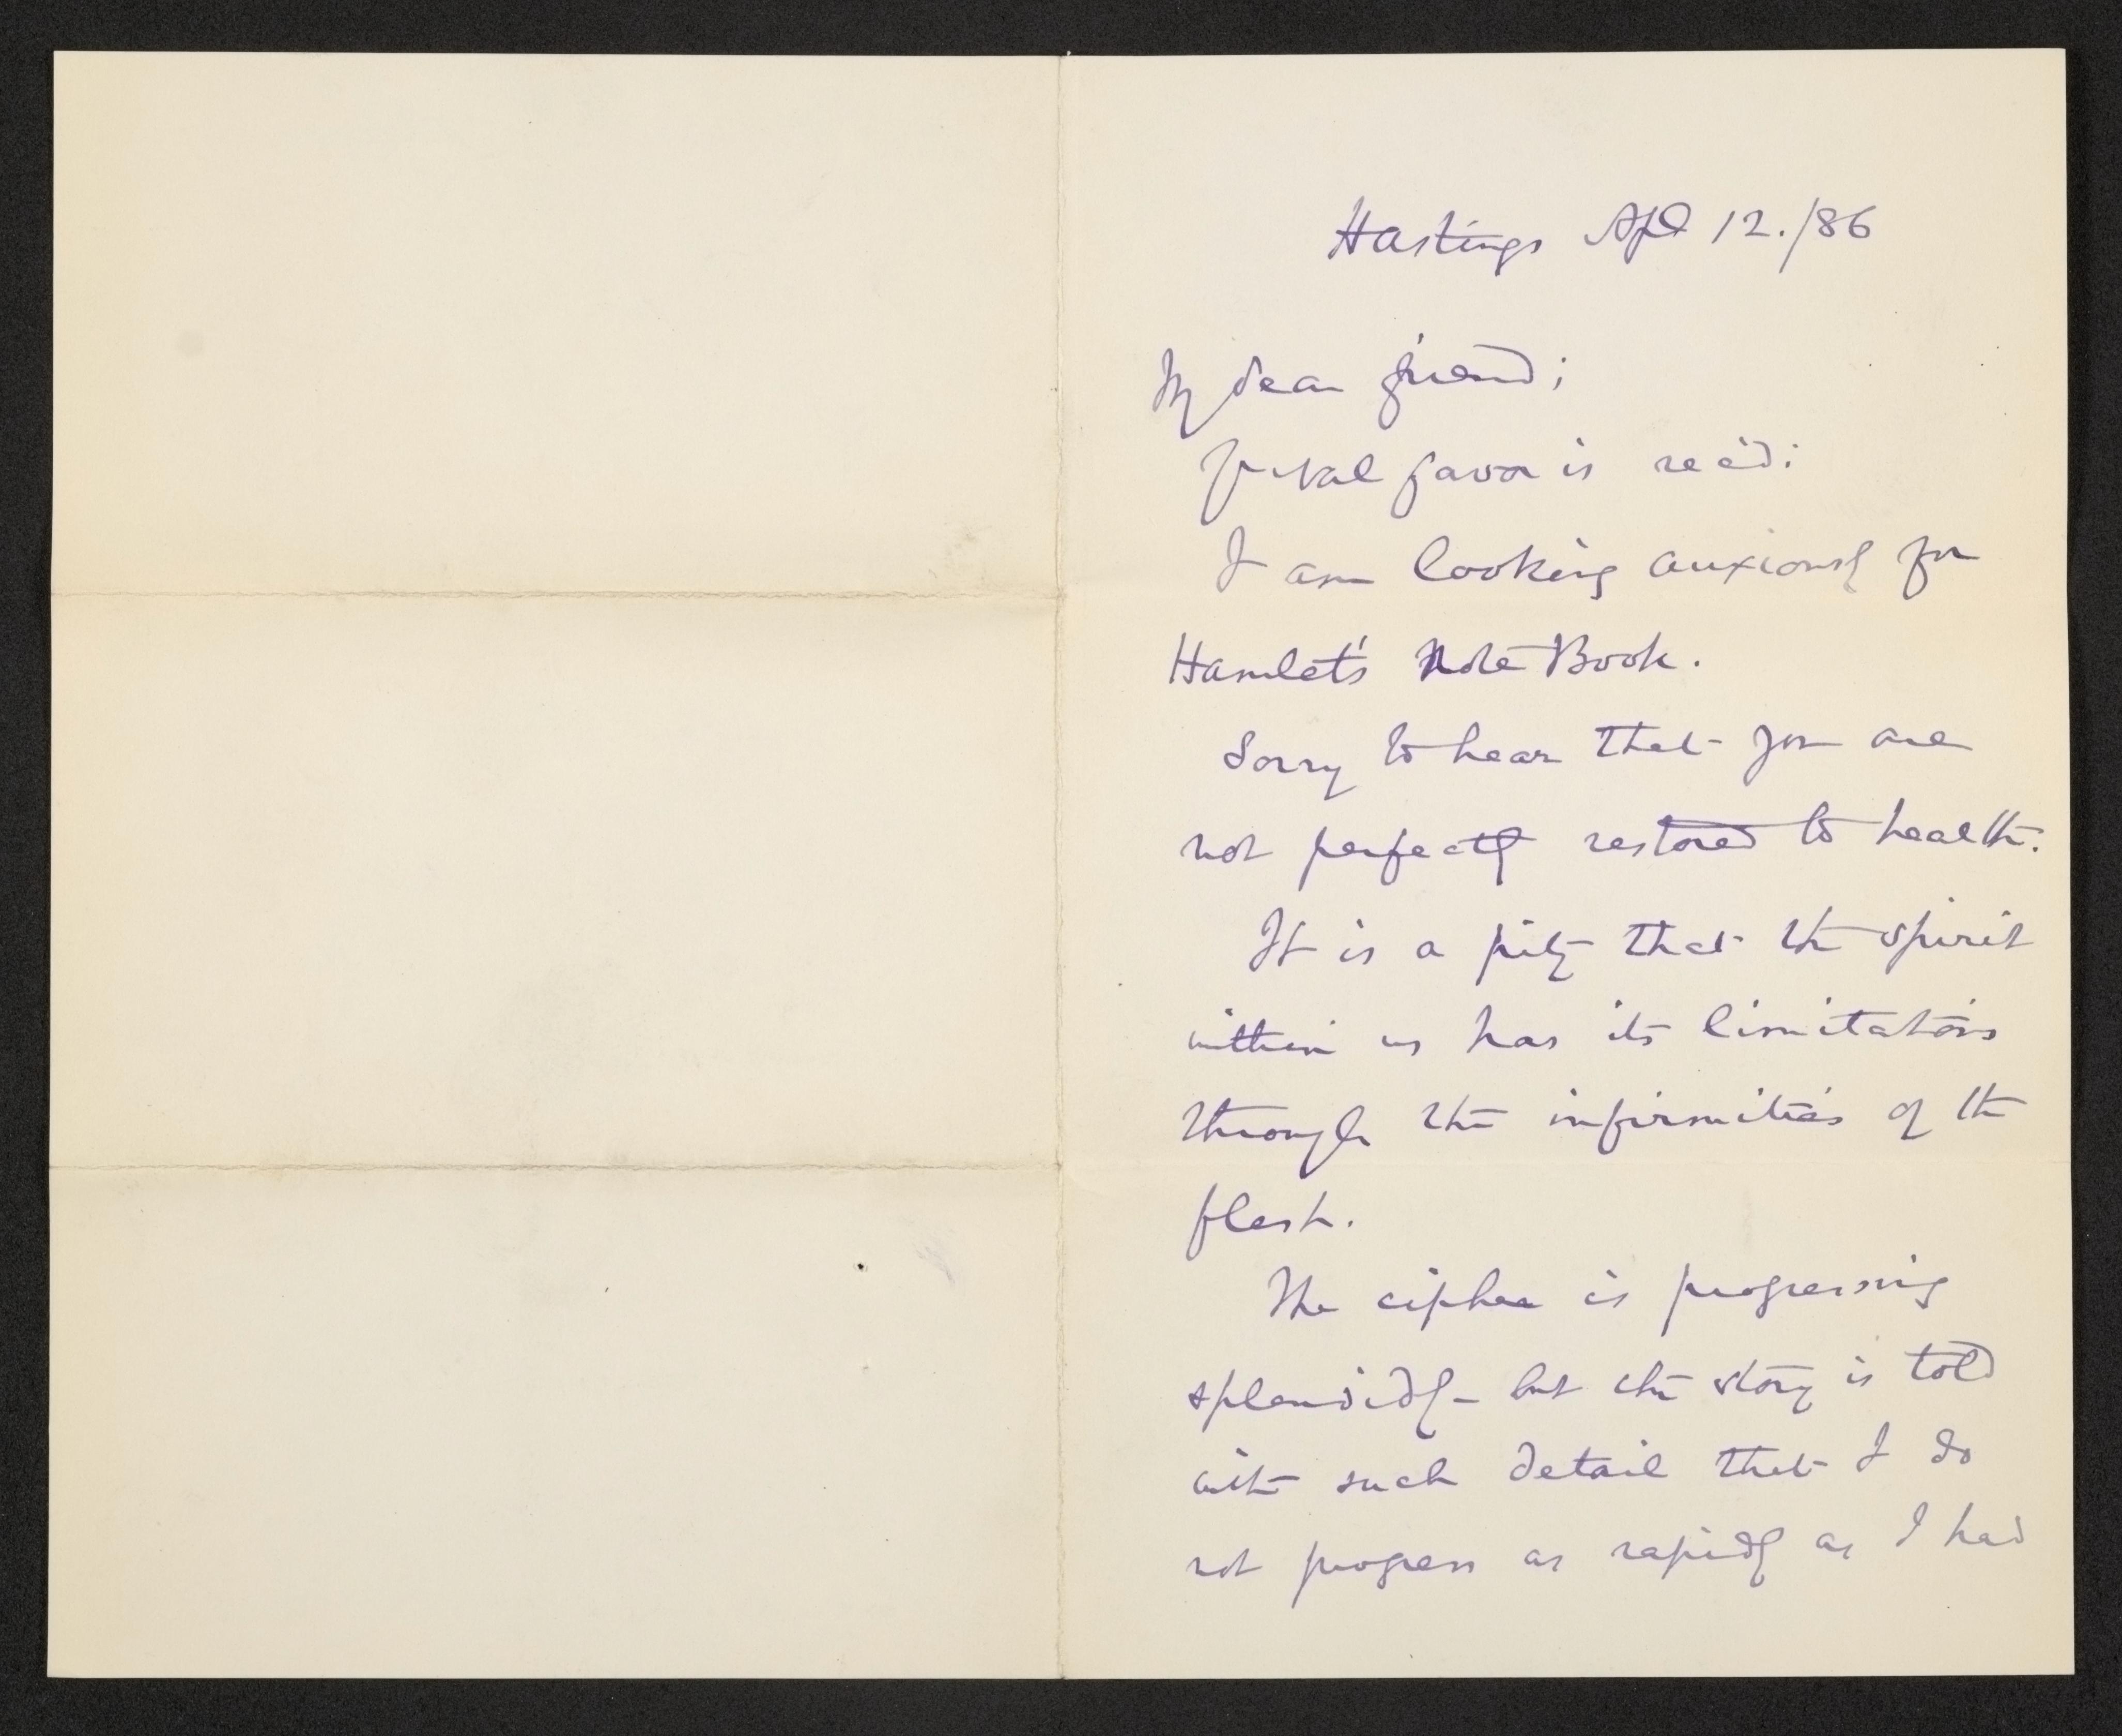 Hastings Apl 12./86
My dear friend;
Your val favor is rec'd:
I am looking anxiously for
Hamlet's Note Book.
Sorry to hear that you are
not perfectly restored to health.
It is a pity that the spirit
within us has its limitations
through the infirmities of the
flesh.
The cipher is progressing
splendidly – but the story is told
with such detail that I do
not progress as rapidly as I had